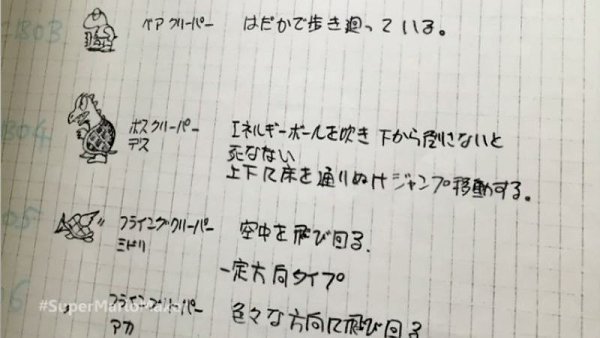 ベアクリーパー はだかで歩き廻っている。
ボスクリーパー エネルギーボールを吹き 下から倒さないと
デス 死なない
上下に床を通りぬけジャンプ移動する。
フライングクリーパー 空中を飛び回る。
ミドリ
一定方向タイプ
フライングクリーパー 色々な方向に飛び回る
アカ